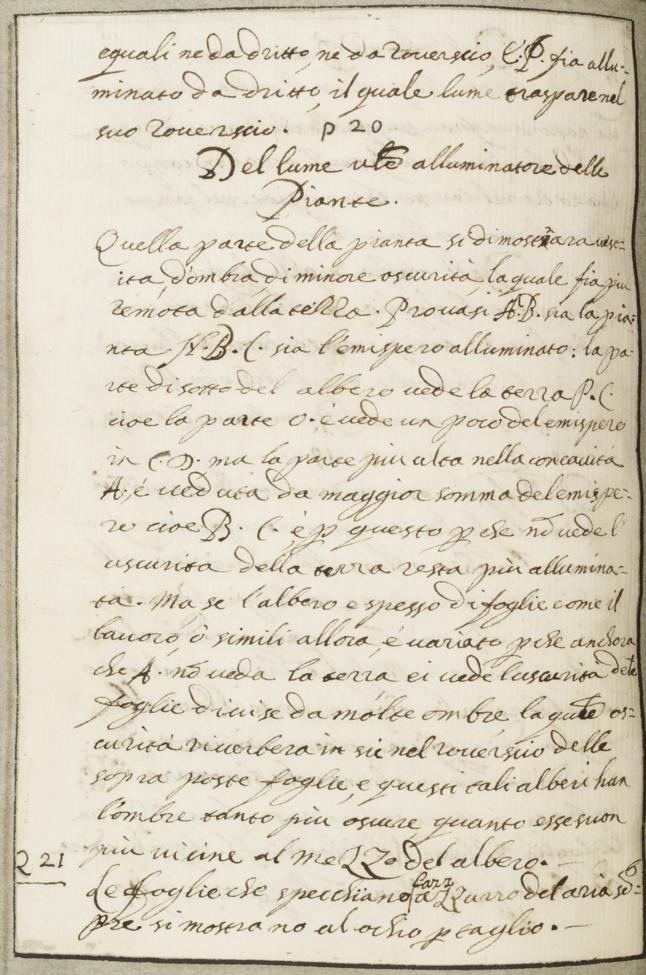 equali ne da dritto, ne da roverscio, C. P. fia allu-
minato da dritto, il quale lume traspare nel
suo roverscio. p 20
Del lume ulᵉ alluminatore delle
Piante.
Quella parte della pianta si dimostrara vest=
ita d'ombra di minore oscurità, la quale fia piu
remota dalla terra. Provasi A.P. sia la pia-
nta N.B.C. sia l'emispero alluminato: la pa-
rte di sotto del albero vede la terra P.C.
cioe la parte o. e vede un poco del emispero
in C.D. ma la parte piu alta nella concavità
A. é veduta da maggior somma del emispe-
ro cioe B. C. é p questo p che nō vede l'
uscurita della terra resta più allumina=
ta. Ma se l'albero e spesso di foglie come il
lauoro, ò simili allora, é variato p che anchora
che A. nō veda la terra ei vede l'uscurità delᵉ
foglie divise da molte ombre la quᵉ os=
curità riverbera in sù nel roverscio delle
sopra poste foglie, e questi tali alberi han
l'ombre tanto più oscure quanto esse suon
più vicine al meZZo del albero. —
Q 21
Le foglie che spechiano l'azzurro del aria sē=
pre si mostrano al ochio p taglio. —